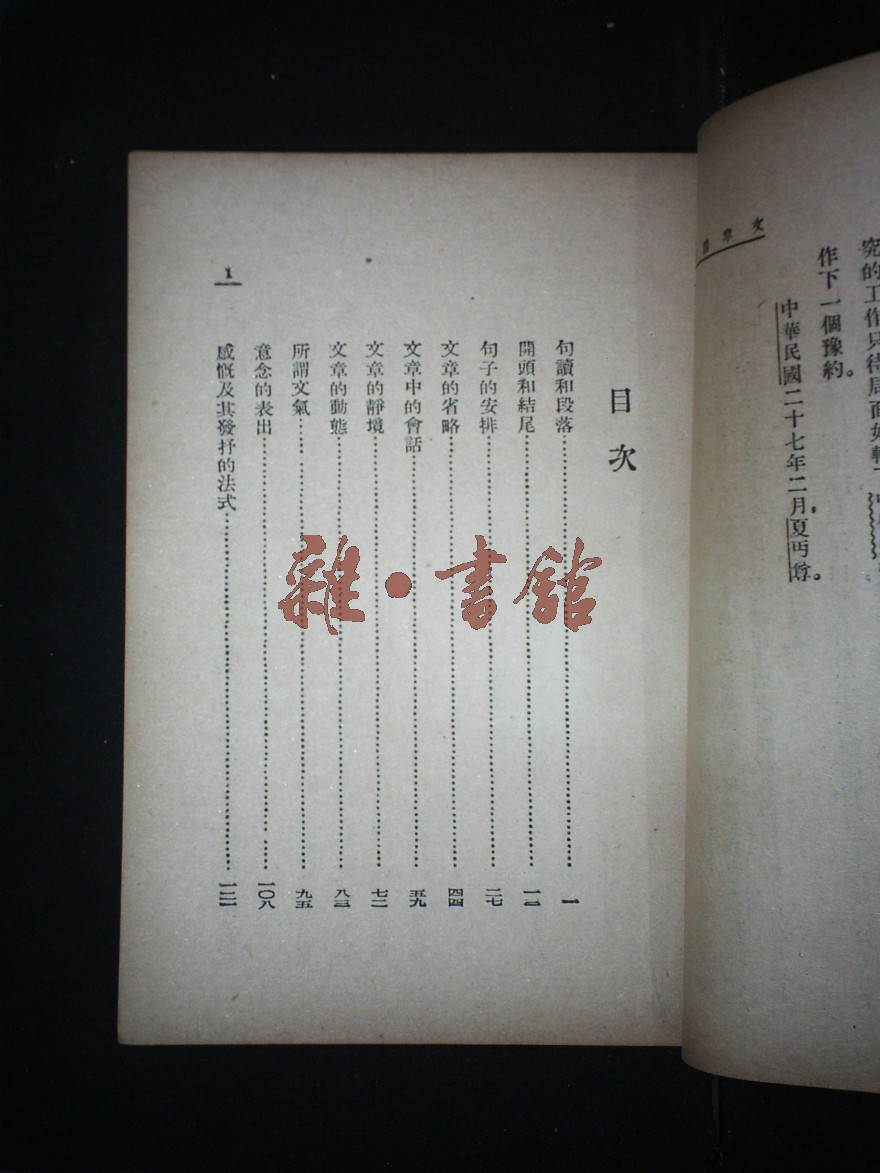 作下一個豫約。
中華民國二十七年二月夏丏尊。
目次
句讀和段落 一
開頭和結尾
句子的安排 二七
文章的省略 四四
文章中的會話 五九
文章的靜境
文章的動態
所謂文氣 九五
意念的表出 一〇八
感慨及其發抒的法式
1
雜・書館